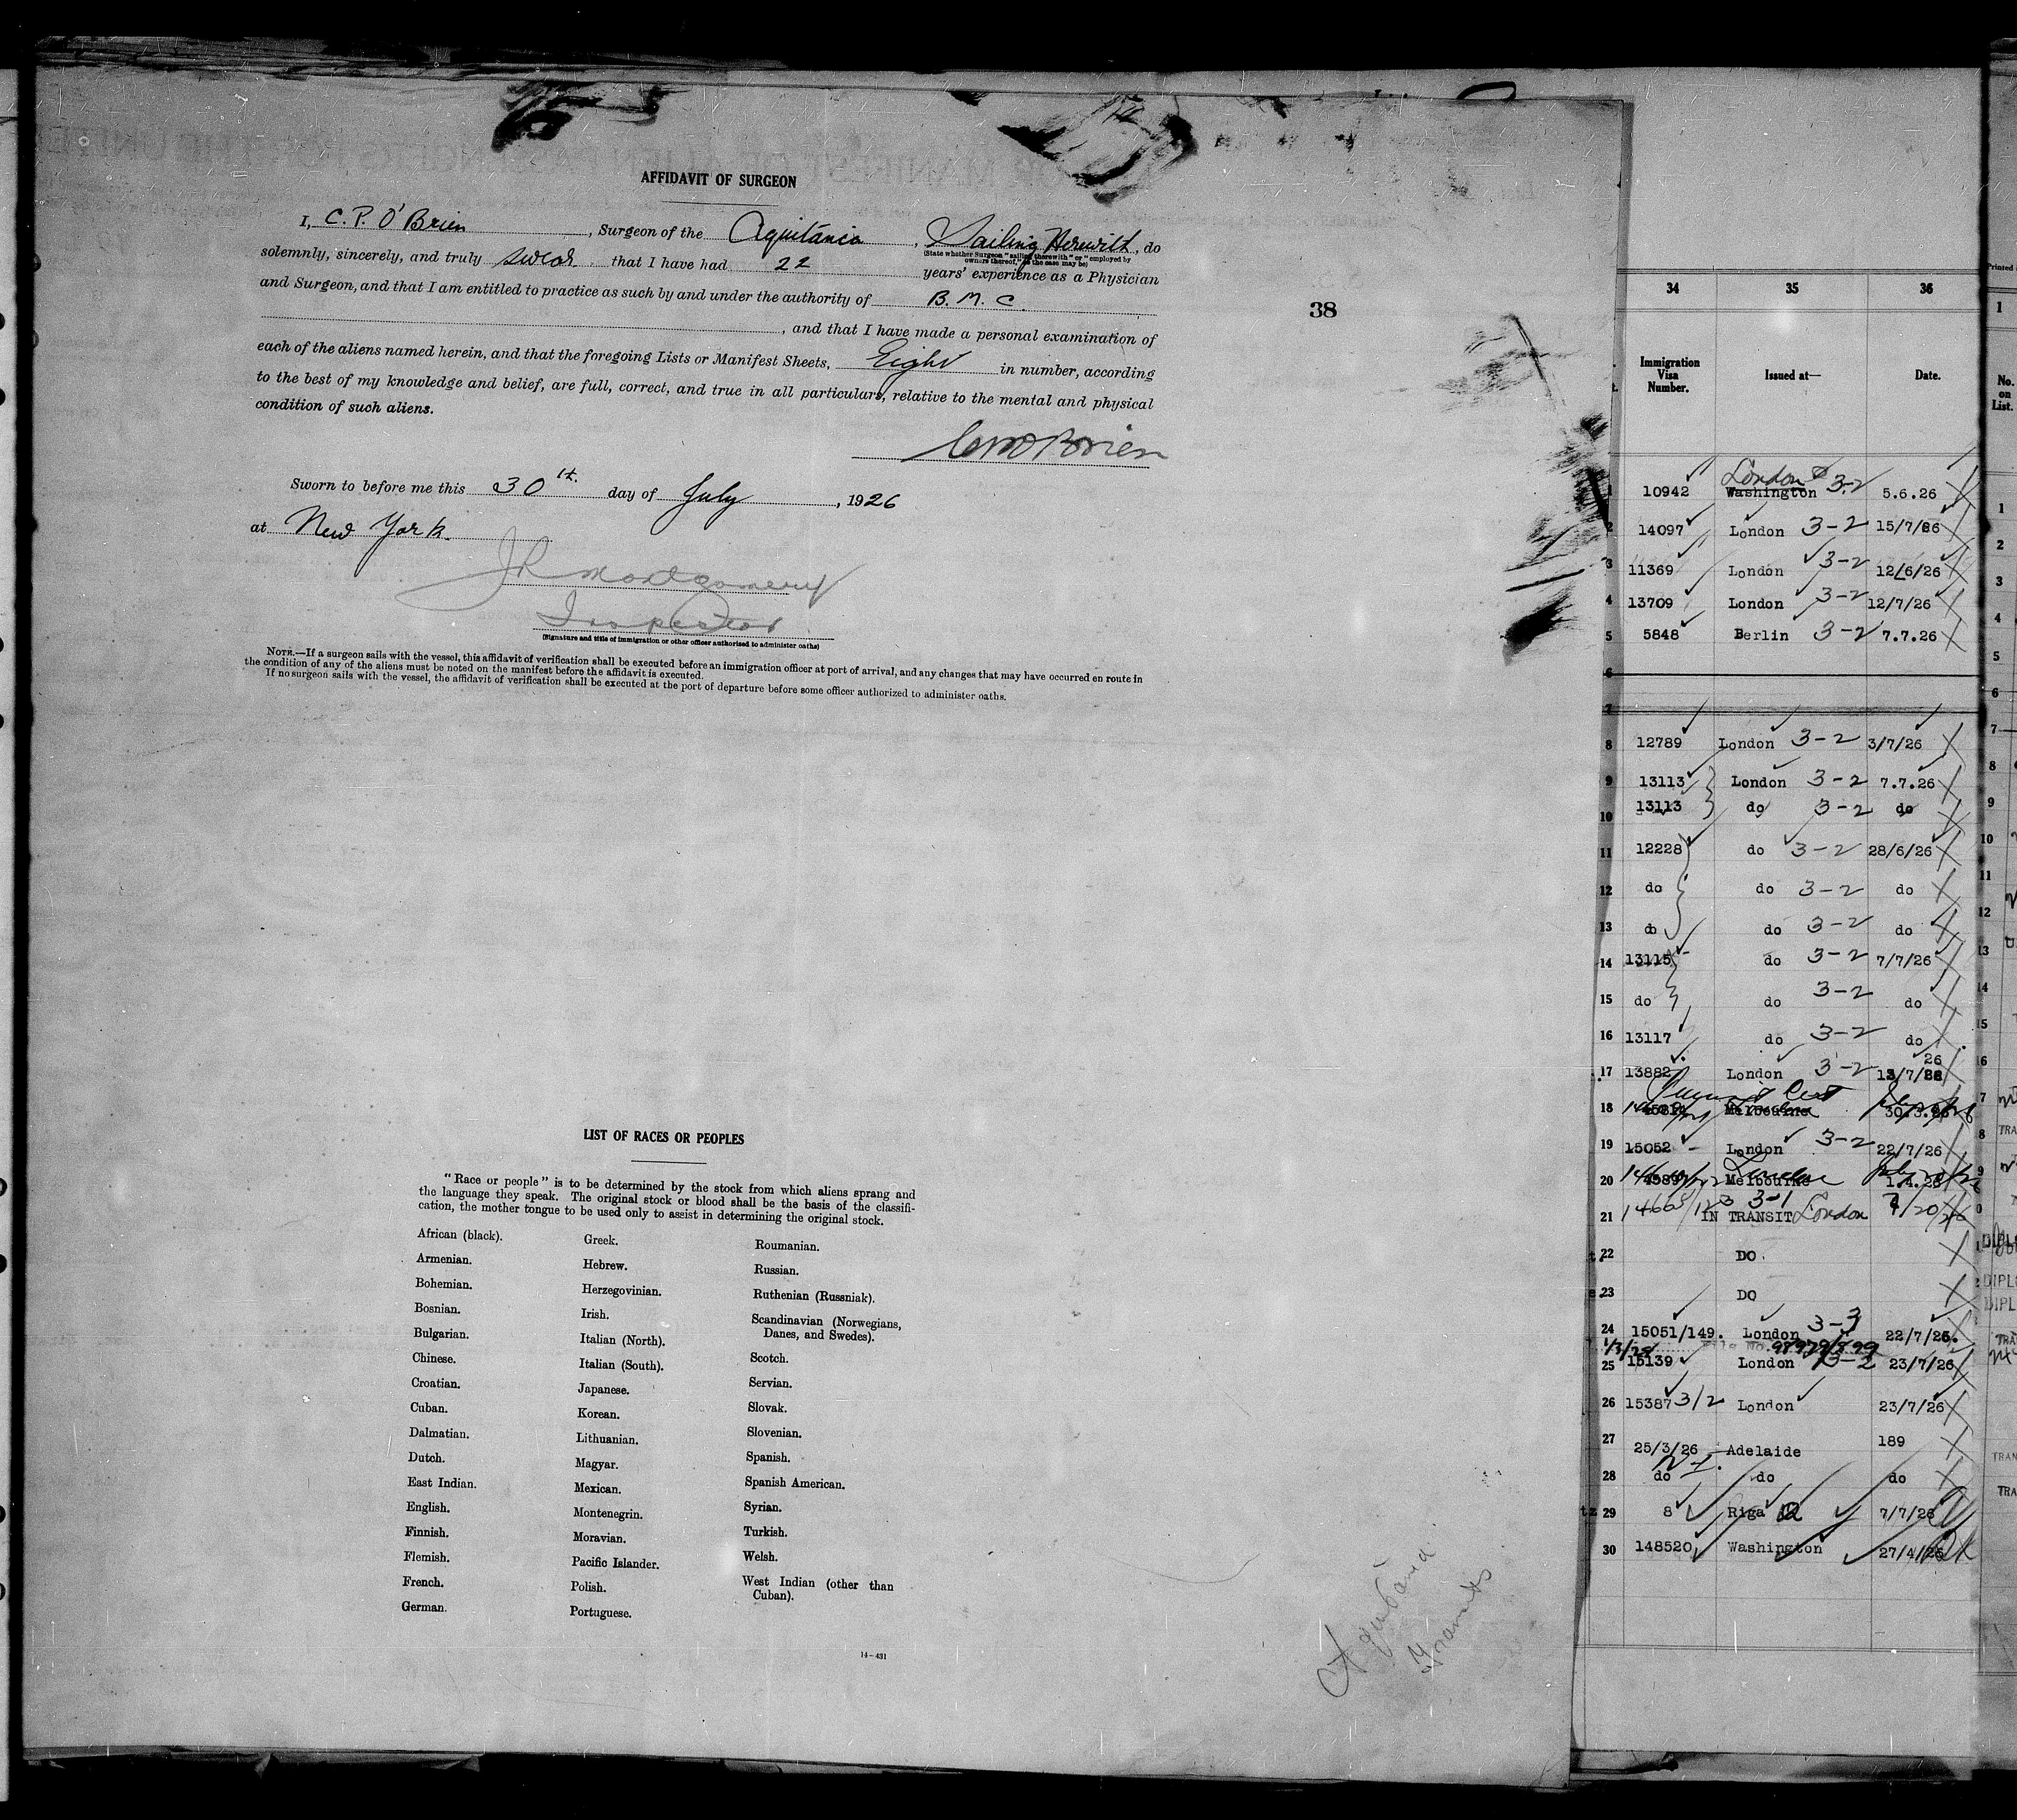 AFFIDAVIT OF SURGEON
I, C. P. O'Brien, Surgeon of the Aquitania, Sailing Herewith, do
(State whether Surgeon "sailing therewith" or "employed by
owners thereof," as the case may be)
solemnly, sincerely, and truly swear that I have had 22 years' experience as a Physician
and Surgeon, and that I am entitled to practice as such by and under the authority of B. M. C.
, and that I have made a personal examination of
each of the aliens named herein, and that the foregoing Lists or Manifest Sheets, Eight in number, according
to the best of my knowledge and belief, are full, correct, and true in all particulars, relative to the mental and physical
condition of such aliens.
Sworn to before me this 30th. day of July, 1926
at New York.
JR Montgomery
Inspector
(Signature and title of immigration or other officer authorized to administer oaths)
NOTE.—If a surgeon sails with the vessel, this affidavit of verification shall be executed before an immigration officer at port of arrival, and any changes that may have occurred en route in
the condition of any of the aliens must be noted on the manifest before the affidavit is executed.
If no surgeon sails with the vessel, the affidavit of verification shall be executed at the port of departure before some officer authorized to administer oaths.
38
LIST OF RACES OR PEOPLES
"Race or people" is to be determined by the stock from which aliens sprang and
the language they speak. The original stock or blood shall be the basis of the classifi-
cation, the mother tongue to be used only to assist in determining the original stock.
African (black).
Armenian.
Bohemian.
Bosnian.
Bulgarian.
Chinese.
Croatian.
Cuban.
Dalmatian.
Dutch.
East Indian.
English.
Finnish.
Flemish.
French.
German.
Greek.
Hebrew.
Herzegovinian.
Irish.
Italian (North).
Italian (South).
Japanese.
Korean.
Lithuanian.
Magyar.
Mexican.
Montenegrin.
Moravian.
Pacific Islander.
Polish.
Portuguese.
Roumanian.
Russian.
Ruthenian (Russniak).
Scandinavian (Norwegians,
Danes, and Swedes).
Scotch.
Servian.
Slovak.
Slovenian.
Spanish.
Spanish American.
Syrian.
Turkish.
Welsh.
West Indian (other than
Cuban).
14-431
Aquitania
34 35 36
Immigration
Visa
Number.
Issued at—
Date.
London
1 10942 Washington 3-2 5.6.26
2 14097 London 3-2 15/7/26
3 11369 London 3-2 12/6/26
4 13709 London 3-2 12/7/26
5 5848 Berlin 3-2 7.7.26
6
7
8 12789 London 3-2 3/7/26
9 13113 London 3-2 7.7.26
10 13113 do 3-2 do
11 12228 do 3-2 28/6/26
12 do do 3-2 do
13 do do 3-2 do
14 13115 do 3-2 7/7/26
15 do do 3-2 do
16 13117 do 3-2 do
26
17 13882 London 3-2 13/7/
18 Melbourne
19 15052 London 3-2 22/7/26
20 Melbourne London
21 3-1 IN TRANSIT London 7/20/26
22 DO
23 DO
24 15051/149. London 3-3 22/7/26.
File No. 98979/899
25 15139 London 3-2 23/7/26
26 15387 3/2 London 23/7/26
27 25/3/26 Adelaide 189
28 do do do
29 8 Riga 7/7/26
30 148520 Washington 27/4/26
Printed
1
No.
on
List.
1
2
3
4
5
6
7
8
9
10
11
12
13
14
15